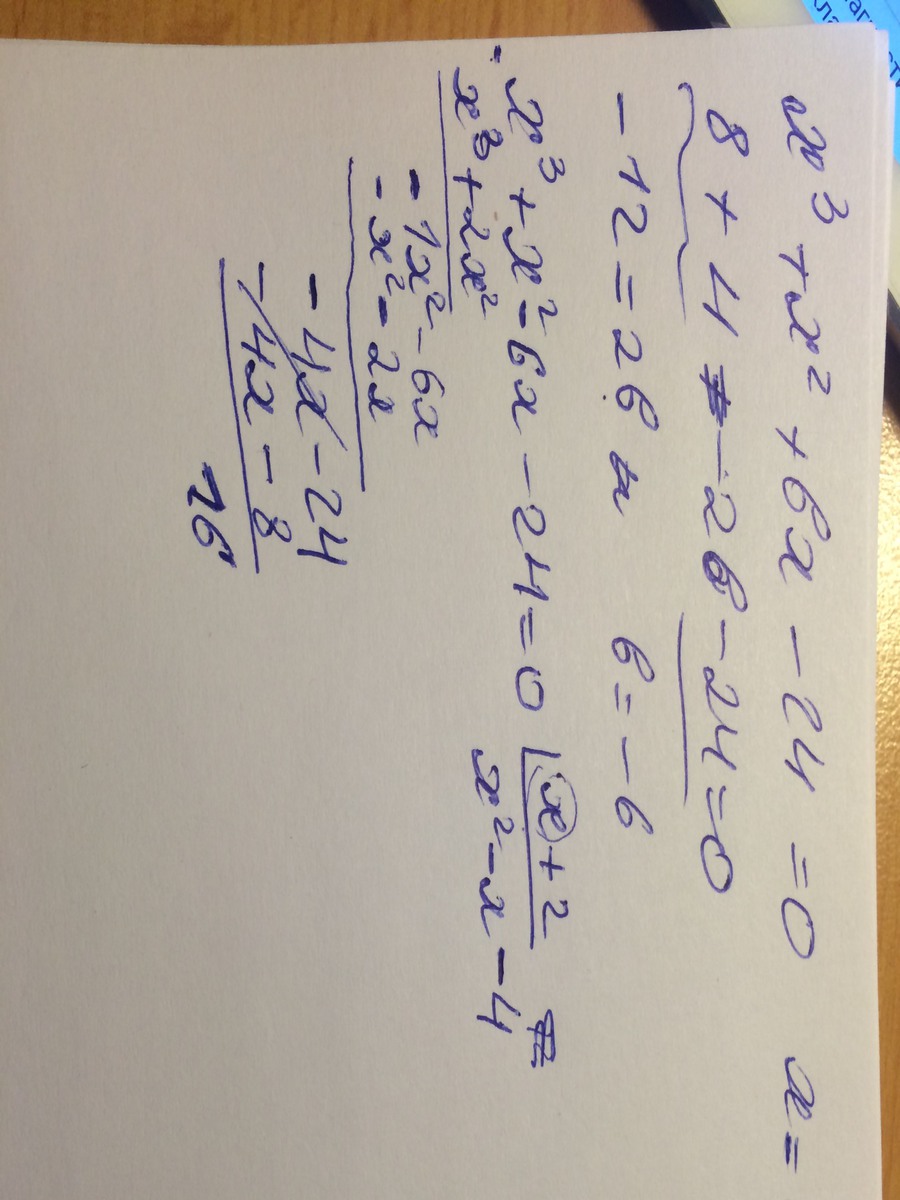 x³ + x² + bx - 24 = 0 x =
8 + 4 - 2b - 24 = 0
- 12 = 2b b = - 6
x³ + x² - 6x - 24 = 0 x + 2
x³ + 2x² x² - x - 4
- 1x² - 6x
- x² - 2x
- 4x - 24
- 4x - 8
16